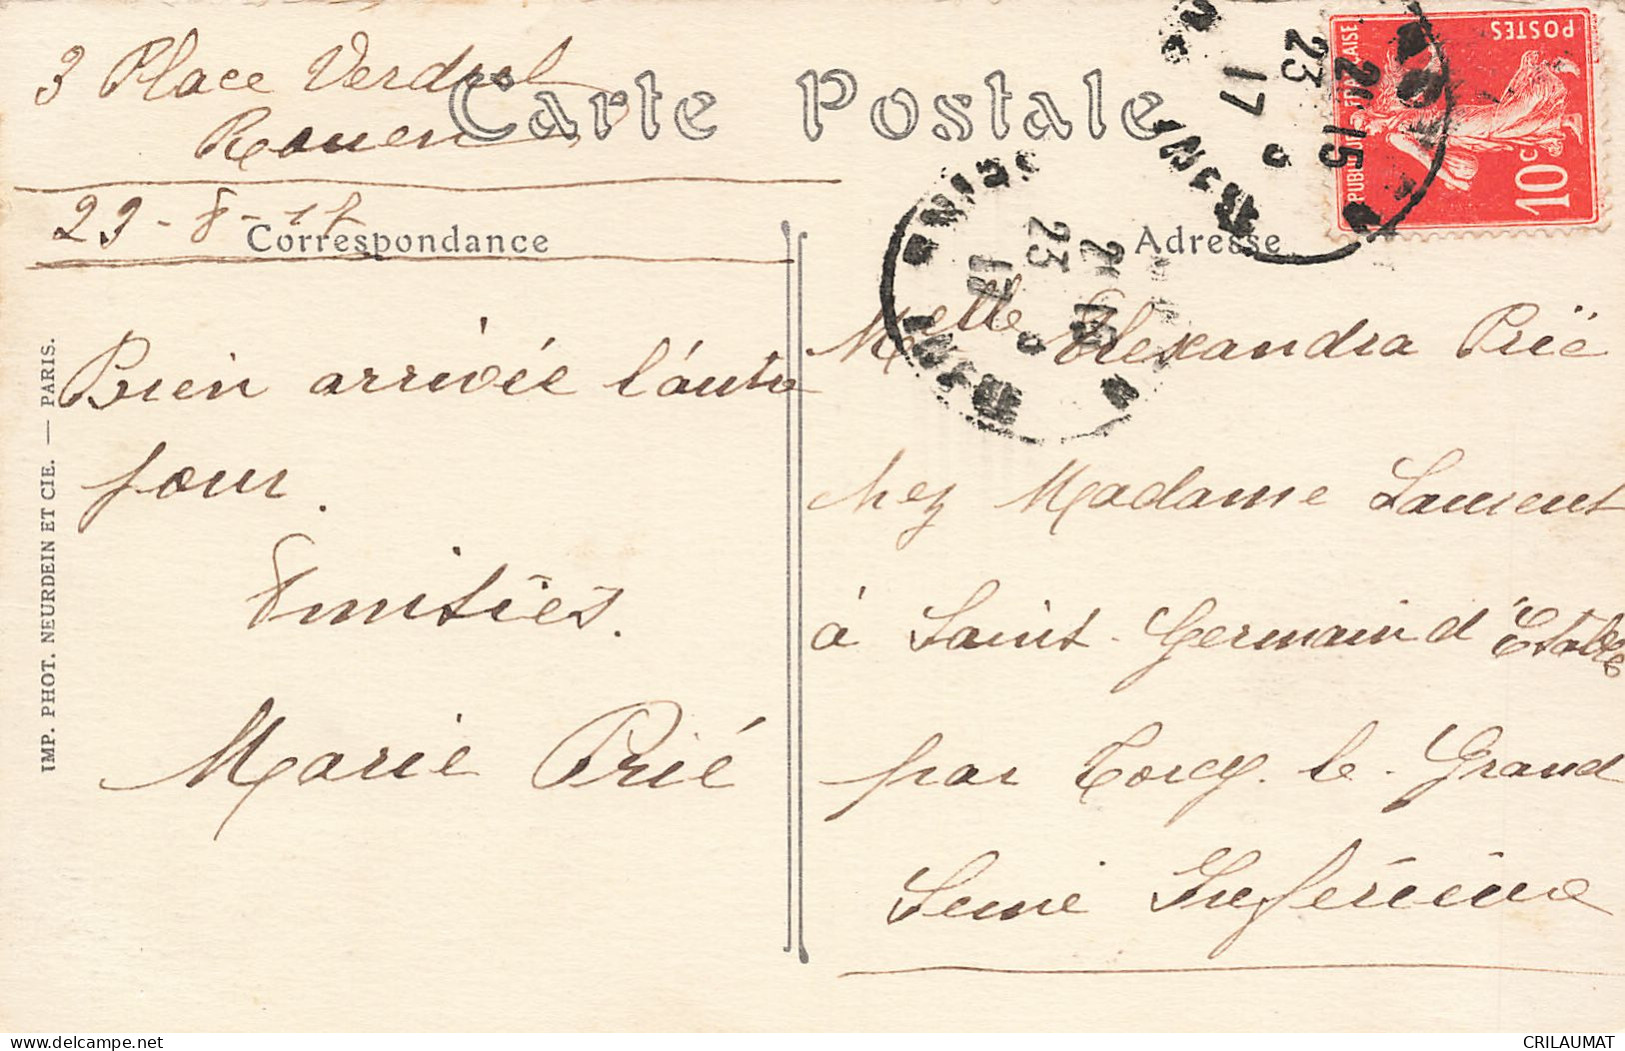 3 Place Verdrel
Rouen
Carte Postale
23-8-17
Correspondance
Adresse
Bien arrivée l'autre
jour.
Amitiés.
Marie Prié
Melle Alexandra Prié
chez Madame Laurent
à Saint-Germain d'Etables
par Torcy-le-Grand
Seine Inférieure
IMP. PHOT. NEURDEIN ET CIE. — PARIS.
POSTES
10c
21 15
23
17
23
17
delcampe.net
CRILAUMAT